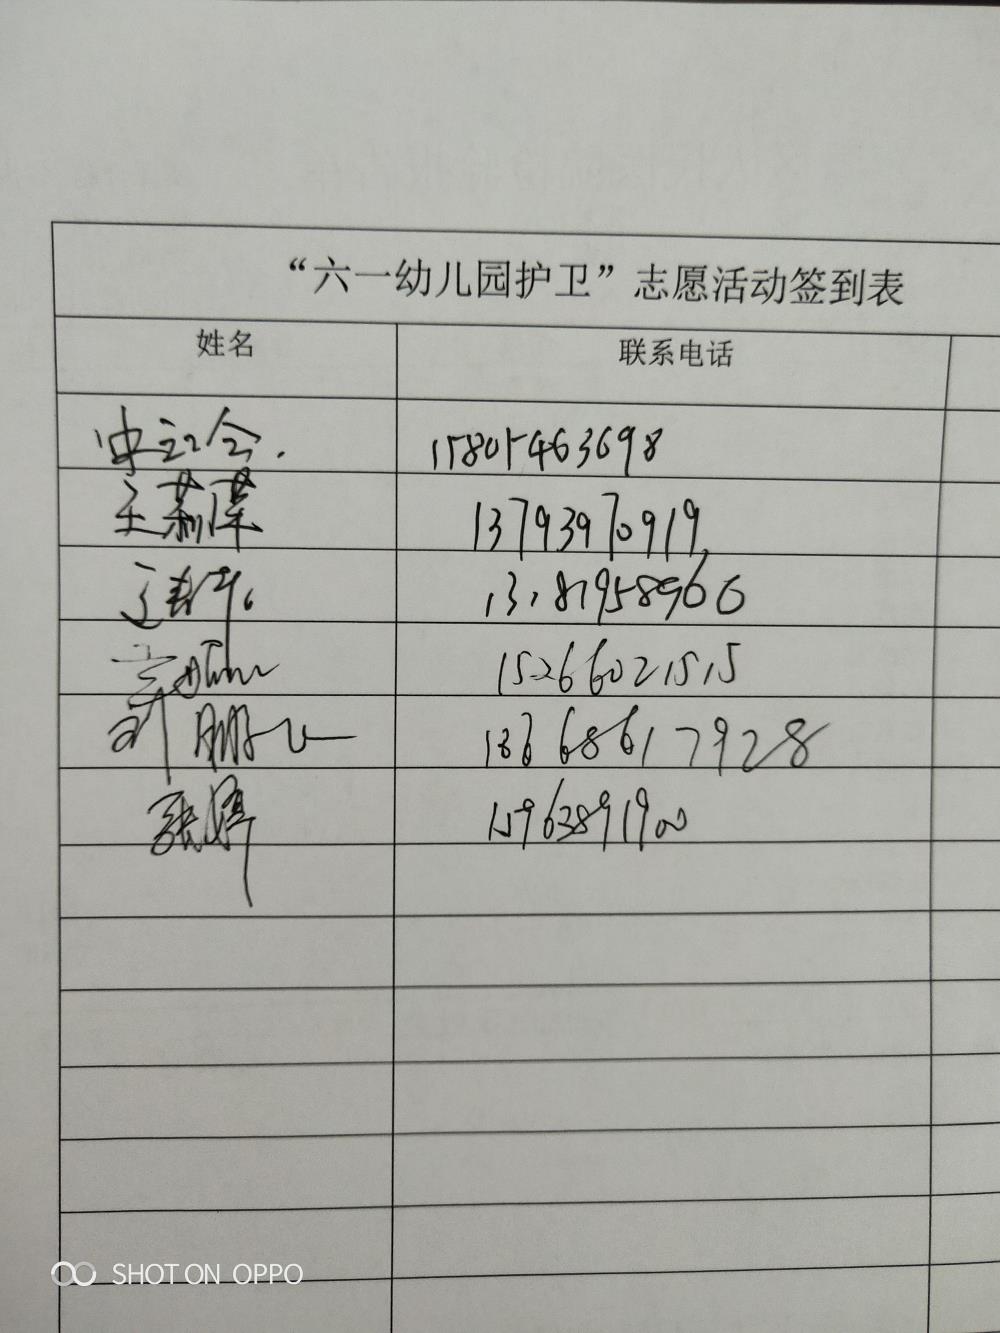 “六一幼儿园护卫”志愿活动签到表
姓名 联系电话
15805463698
王莉萍 13793970919
13181958966
15266021515
刘鹏飞 13668617928
张婷 15963891900
SHOT ON OPPO